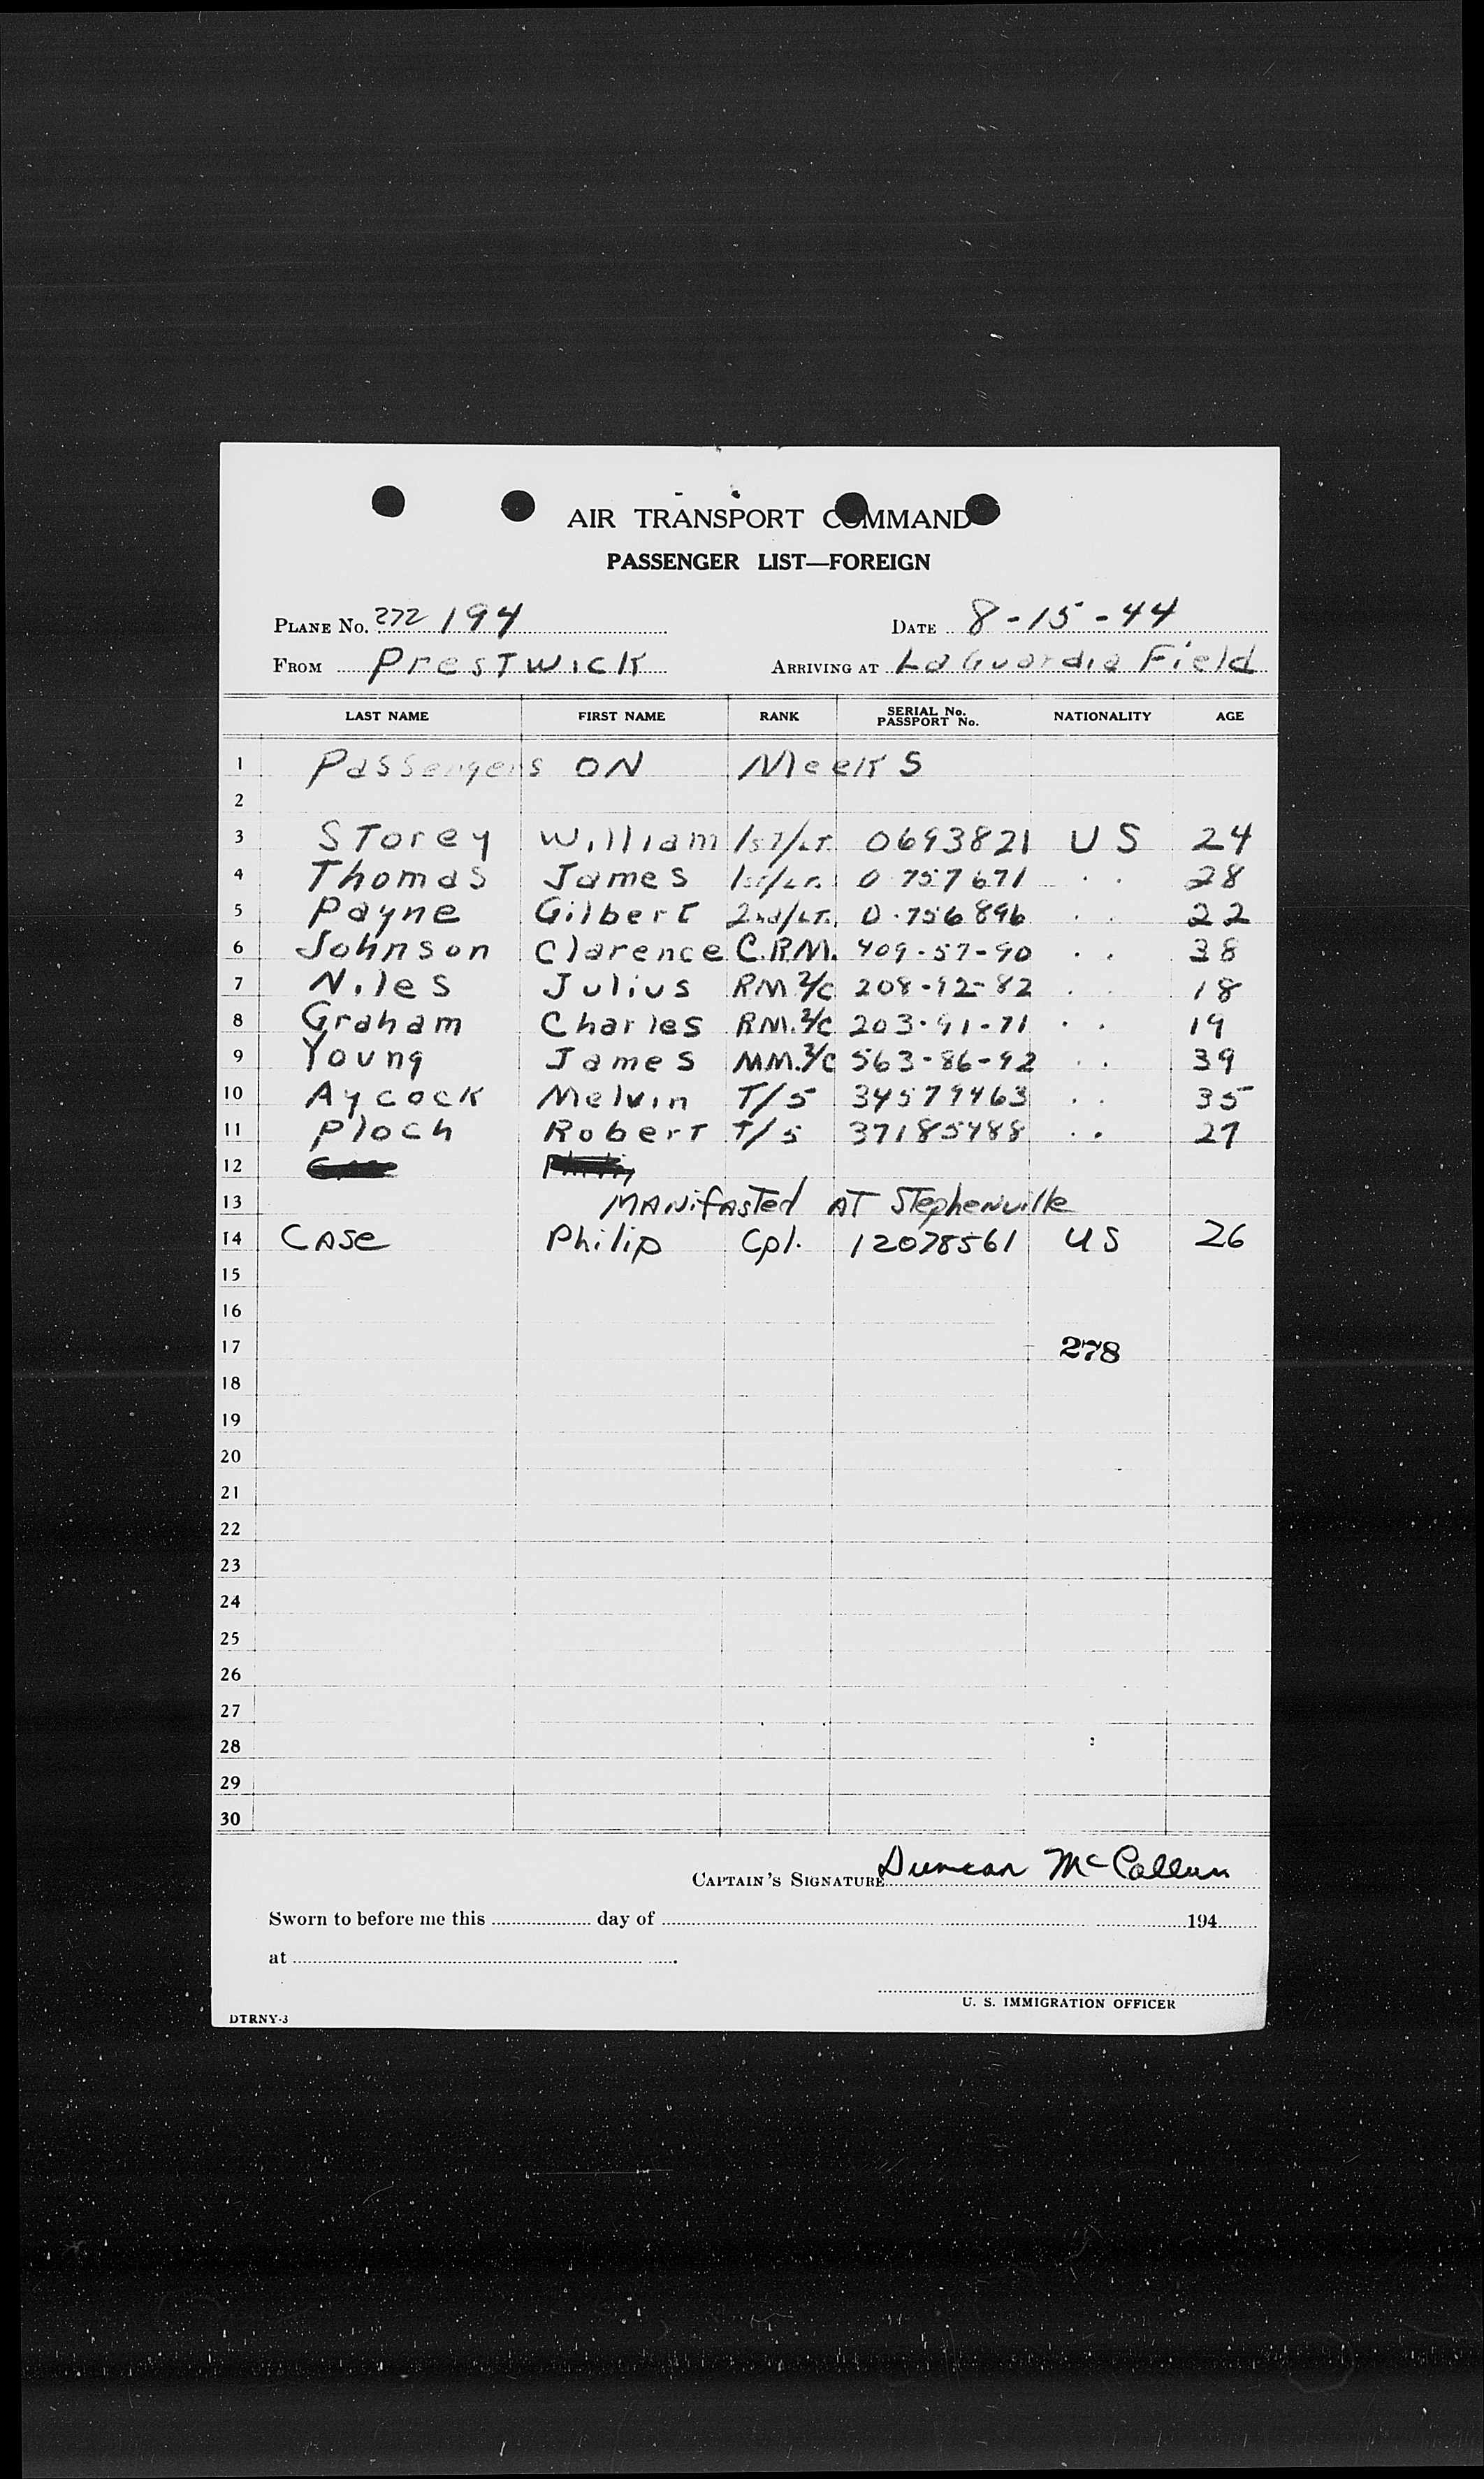 AIR TRANSPORT COMMAND
PASSENGER LIST—FOREIGN
PLANE No. 272 194 DATE 8-15-44
FROM Prestwick ARRIVING AT LaGuardia Field
LAST NAME FIRST NAME RANK SERIAL No. PASSPORT No. NATIONALITY AGE
1 Passengers ON Meeks
2
3 Storey William 1st/Lt. 0693821 US 24
4 Thomas James 1st/Lt. 0 757671 " 28
5 Payne Gilbert 2nd/Lt. 0-756896 " 22
6 Johnson Clarence C.R.M. 409-57-90 " 38
7 Niles Julius RM 2/c 208-92-82 " 18
8 Graham Charles RM. 2/c 203-91-71 " 19
9 Young James MM. 2/c 563-86-92 " 39
10 Aycock Melvin T/5 34579463 " 35
11 Ploch Robert T/5 37185488 " 27
12
13 MANifAsted AT Stephenville
14 CASe Philip Cpl. 12078561 US 26
15
16
17 278
18
19
20
21
22
23
24
25
26
27
28
29
30
CAPTAIN'S SIGNATURE Duncan McCallum
Sworn to before me this day of 194
at
U. S. IMMIGRATION OFFICER
DTRNY-3